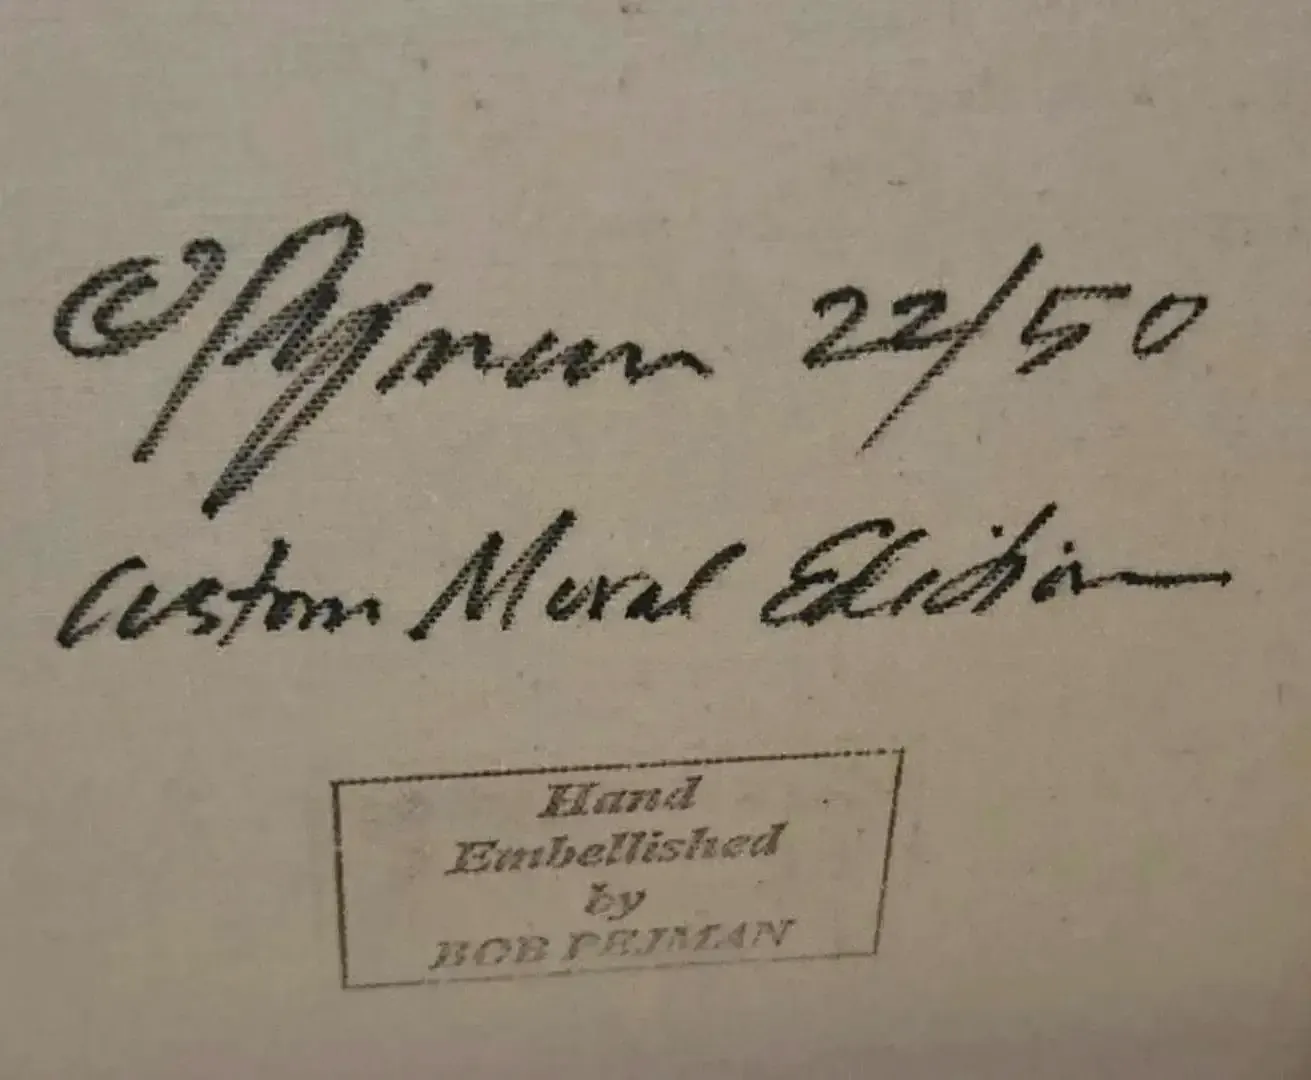 © Pejman 22/50
Custom Mural Edition
Hand
Embellished
by
BOB PEJMAN